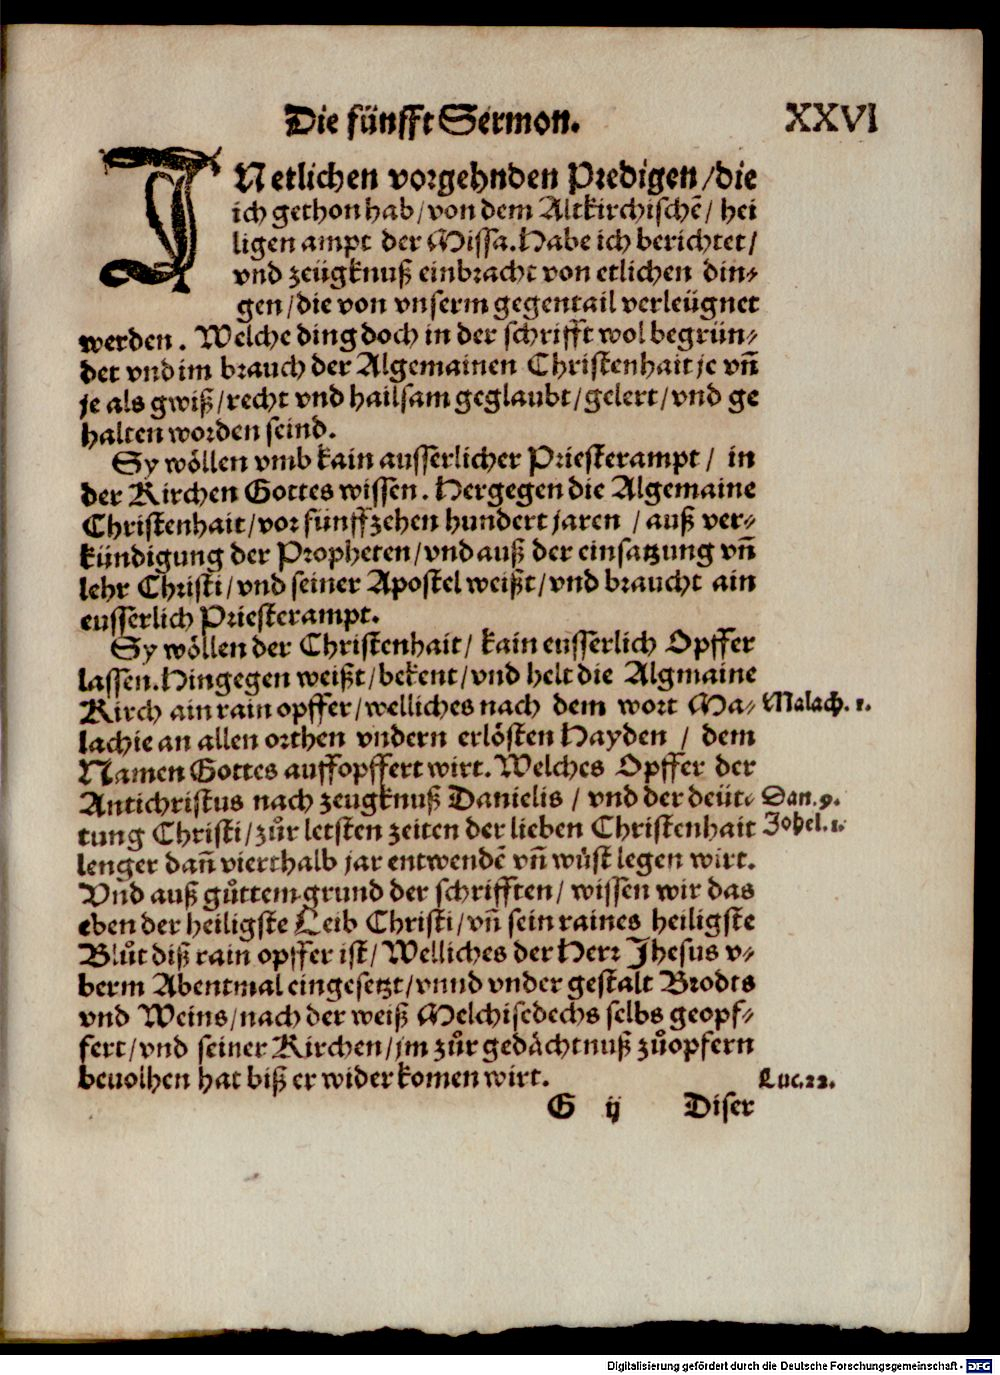 Die fünfft Sermon. XXVI
IN etlichen vorgehnden Predigen / die
ich gethon hab / von dem Altkirchischē / hei
ligen ampt der Missa. Habe ich berichtet /
vnd zeügknuß einbracht von etlichen din⸗
gen / die von vnserm gegentail verleügnet
werden. Welche ding doch in der schrifft wol begrün⸗
det vnd im brauch der Algemainen Christenhait je vñ
je als gwiß / recht vnd hailsam geglaubt / gelert / vnd ge
halten worden seind.
Sy wöllen vmb kain ausserlicher Priesterampt / in
der Kirchen Gottes wissen. Hergegen die Algemaine
Christenhait / vor fünffzehen hundert jaren / auß ver⸗
kündigung der Propheten / vnd auß der einsatzung vñ
lehr Christi / vnd seiner Apostel weißt / vnd braucht ain
eusserlich Priesterampt.
Sy wöllen der Christenhait / kain eusserlich Opffer
lassen. Hingegen weißt / bekent / vnd helt die Algmaine
Kirch ain rain opffer / welliches nach dem wort Ma⸗ Malach. 1.
lachie an allen orthen vndern erlösten Hayden / dem
Namen Gottes auffopffert wirt. Welches Opffer der
Antichristus nach zeugknuß Danielis / vnd der deüt⸗ Dan. 9.
tung Christi / zůr letsten zeiten der lieben Christenhait Johel. 1.
lenger dañ vierthalb jar entwendē vñ wüst legen wirt.
Vnd auß gůttem grund der schrifften / wissen wir das
eben der heiligste Leib Christi / vñ sein raines heiligste
Blůt diß rain opffer ist / Welliches der Herr Jhesus v⸗
berm Abentmal eingesetzt / vnnd vnder gestalt Brodts
vnd Weins / nach der weiß Melchisedechs selbs geopf⸗
fert / vnd seiner Kirchen / jm zůr gedächtnuß zůopfern
beuolhen hat biß er wider komen wirt. Luc. 22.
G ij Diser
Digitalisierung gefördert durch die Deutsche Forschungsgemeinschaft - DFG